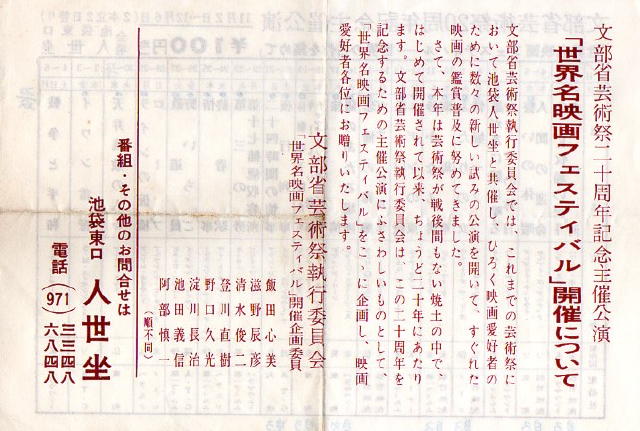 文部省芸術祭二十周年記念主催公演
「世界名映画フェスティバル」開催について
文部省芸術祭執行委員会では、これまでの芸術祭に
おいて池袋人世坐と共催し、ひろく映画愛好者の
ために数々の新しい試みの公演を開いて、すぐれた
映画の鑑賞普及に努めてきました。
さて、本年は芸術祭が戦後間もない焼土の中で、
はじめて開催されて以来、ちょうど二十年にあたり
ます。文部省芸術祭執行委員会は、この二十周年を
記念するための主催公演にふさわしいものとして、
「世界名映画フェスティバル」をこゝに企画し、映画
愛好者各位にお贈りいたします。
文部省芸術祭執行委員会
「世界名映画フェスティバル」開催企画委員
飯田心美
滋野辰彦
清水俊二
登川直樹
野口久光
淀川長治
池田義信
阿部慎一
(順不同)
番組・その他のお問合せは
池袋東口 人世坐
電話(971)三三四八
六八四八